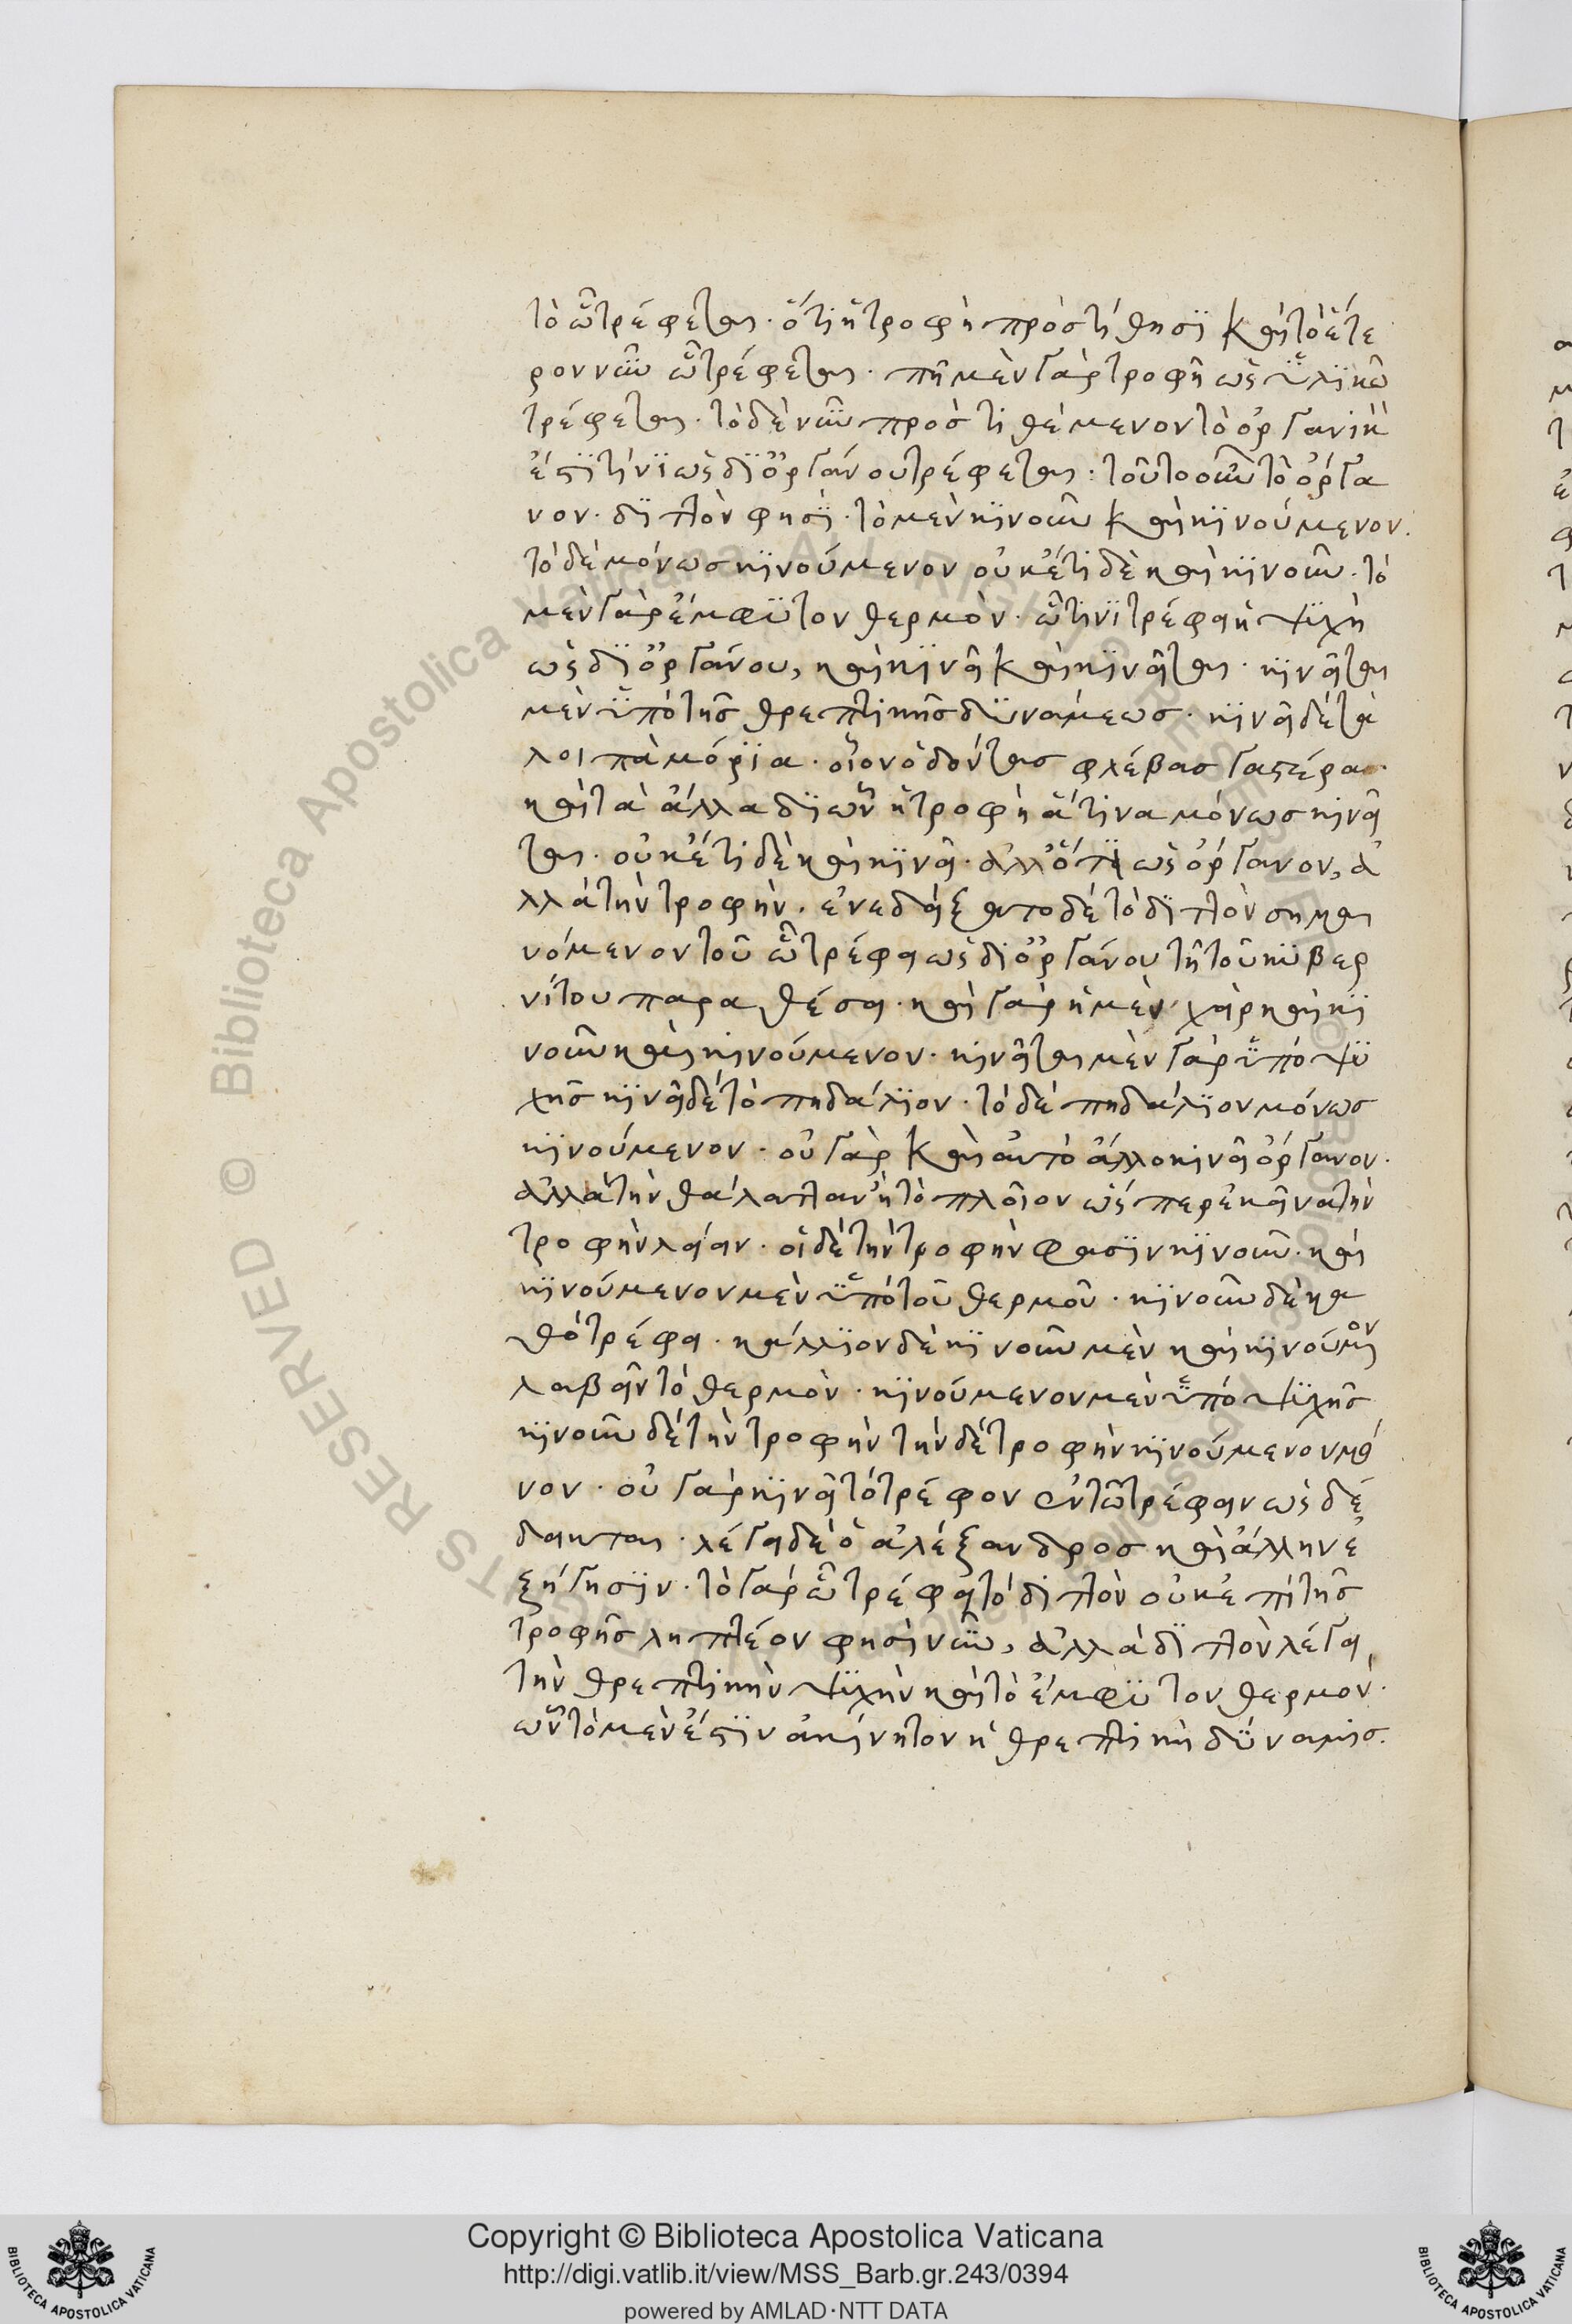 τὸ ὧ τρέφεται. ὅτι ἡ τροφὴ προστίθησϊ καὶ τὸ ἕτε
ρον νῦν ὧ τρέφεται. τῆ μὲν γὰρ τροφῆ ὡς ὑλϊκῶ
τρέφεται. τὸ δὲ νῦν προστιθέμενον τὸ ὀργανικὸν
ἐστϊ τίνϊ ὡς δϊ ὀργάνου τρέφεται: τοῦτο οὖν τὸ ὄργα
νον. διπλὸν φησϊ. τὸ μὲν κϊνοῦν καὶ κϊνούμενον.
τὸ δὲ μόνως κϊνούμενον οὐκέτι δὲ καὶ κϊνοῦν. τὸ
μὲν γὰρ ἔμφϋτον θερμὸν. ὧτινϊ τρέφει ἡ ψϋχὴ
ὡς δϊ ὀργάνου, καὶ κϊνεῖ καὶ κϊνεῖται. κϊνεῖται
μὲν ὑπὸ τῆς θρεπτικῆς δϋνάμεως. κϊνεῖ δὲ τὰ
λοιπὰ μόρϊα. οἷον ὀδόντας φλέβας γαστέρα.
καὶ τὰ ἄλλα δϊ ὧν ἡ τροφὴ ἅτινα μόνως κινεῖ
ται. οὐκέτι δὲ καὶ κϊνεῖ. ἄλλό τϊ ὡς ὄργανον, ἀ
λλὰ τὴν τροφὴν. ἐνεδείξατο δὲ τὸ διπλὸν σημαι
νόμενον τοῦ ὧ τρέφει ὡς δι ὀργάνου τῆ τοῦ κϋβερ
νίτου παραθέσει. καὶ γὰρ ἡ μὲν χεὶρ καὶ κϊ
νοῦν καὶ κινούμενον. κινεῖται μὲν γὰρ ὑπὸ ψϋ
χῆς κϊνεῖ δὲ τὸ πηδάλϊον. τὸ δὲ πηδάλϊον μόνως
κϊνούμενον. οὐ γὰρ καὶ αὐτὸ ἄλλο κινεῖ ὄργανον.
ἀλλὰ τὴν θάλατταν ἢ τὸ πλοῖον ὥσπερ ἐκεῖνα τὴν
τροφὴν λείαν. οἱ δὲ τὴν τροφὴν φασϊν κϊνοῦν. καὶ
κϊνούμενον μὲν ὑπὸ τοῦ θερμοῦ. κϊνοῦν δὲ κα
θὸ τρέφει. κάλλϊον δὲ κϊνοῦν μὲν καὶ κϊνούμενον
λαβεῖν τὸ θερμὸν. κϊνούμενον μὲν ὑπὸ ψϋχῆς
κϊνοῦν δὲ τὴν τροφὴν τὴν δὲ τροφὴν κϊνούμενον μό
νον. οὐ γὰρ κϊνεῖ τὸ τρέφον ἐν τῶ τρέφειν ὡς δέ
δεικται. λέγει δὲ ὁ ἀλέξανδρος καὶ ἄλλην ἐ
ξήγησϊν. τὸ γὰρ ὧ τρέφει τὸ διπλὸν οὐκ ἐπὶ τῆς
τροφῆς ληπτέον φησὶ νῦν, ἀλλὰ δϊπλὸν λέγει
τὴν θρεπτικὴν ψϋχὴν καὶ τὸ ἔμφϋτον θερμὸν.
ὧν τὸ μὲν ἐστϊν ἀκίνητον ἡ θρεπτικὴ δύναμις.
Copyright © Biblioteca Apostolica Vaticana
http://digi.vatlib.it/view/MSS_Barb.gr.243/0394
powered by AMLAD·NTT DATA